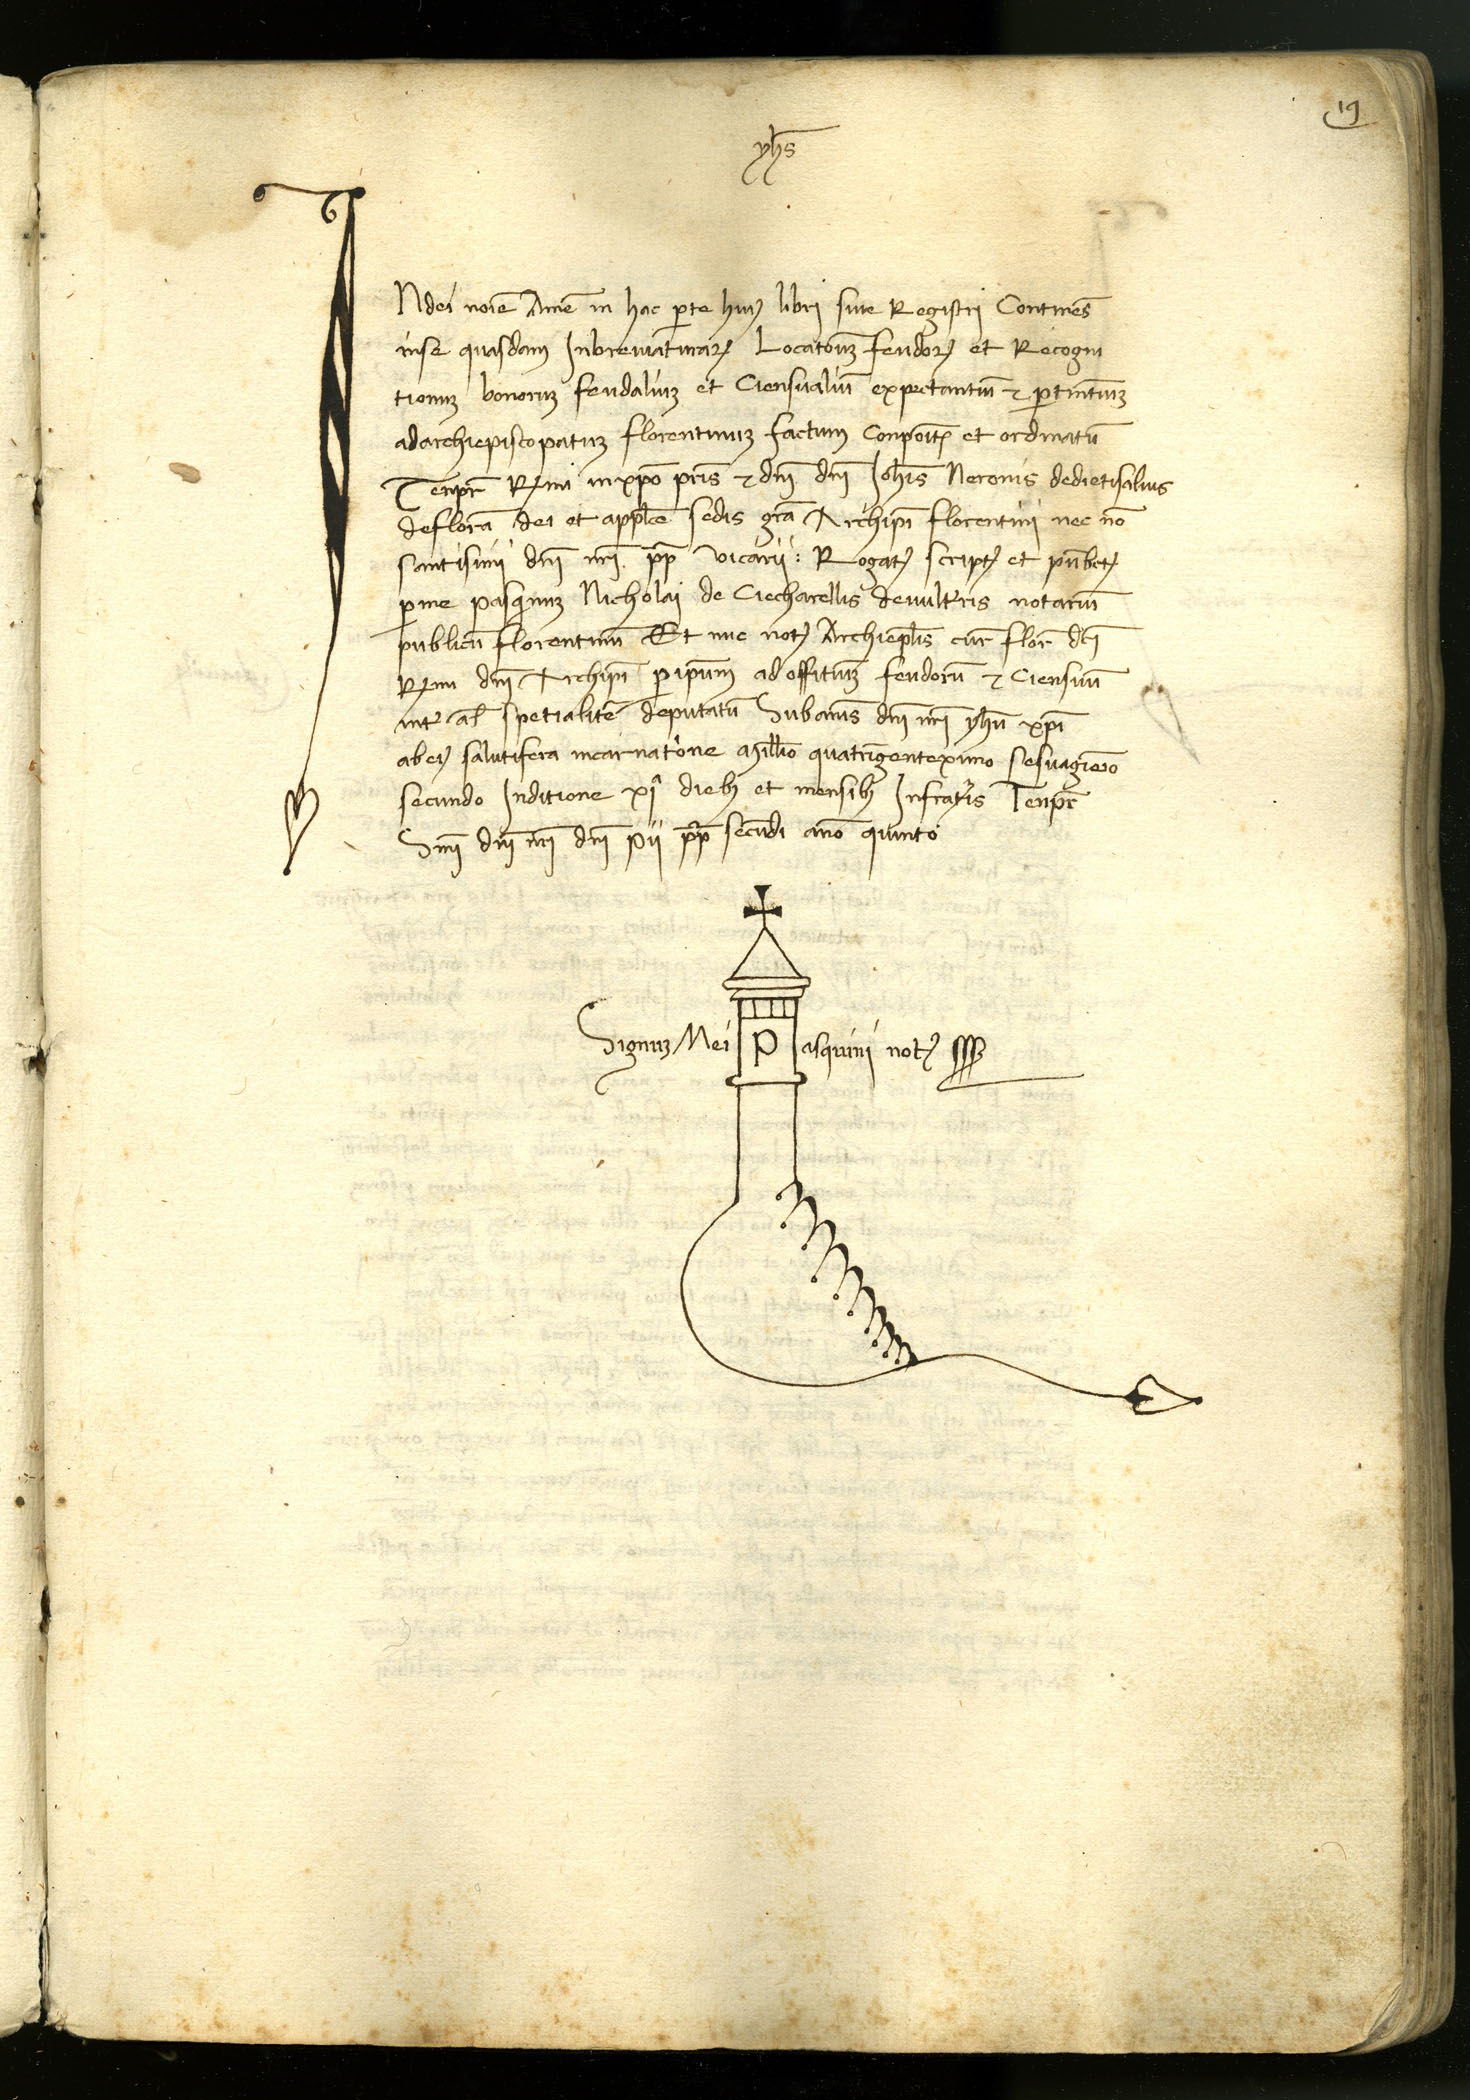 19
yhs̄
INdei noīe Amē in hac parte huiꝰ libri sive Registri Continēs
inse quasdam Inbreviaturaꝝ Locatoūm feudoꝝ et Recogni
tionum bonorum feudalium et Ciensualiū expectantiū ⁊ ꝑtinētium
adarchiepiscopatum florentinum factum Conpoīt et ordinatū
Tenpr̄ R̄mi inxp̄o pr̄is ⁊ dn̄i dn̄i Joh̄is Neronis dedietisalvis
deflorā dei et appl̄ce sedis grā Archip̄i florentini nec nō
santisimi dn̄i nr̄i pp̄ vicarii: Rogatꝰ scriptꝰ et
ꝑme pasquinum Nicholai de Ciecharellis devulterris notariū
publicū florentinū Et nūc notꝰ Archiepl̄is cur̄ flor̄ dc̄i
R̄mi dn̄i Archip̄i ꝑipsum ad offitium feudorū ⁊ Ciensuū
int̄ al̄ spetialitē deputatū Subannis dn̄i nr̄i yhū xp̄i
abeiꝰ salutifera incarnatione millīo quatrigentexīmo sesuagiēo
secundo Inditione xj dieb; et mensib; Infratr̄is Tenpr̄
Sm̄i dn̄i nr̄i dn̄i pii pp̄ secūdi anō quinto
Signum Mei Pasquini notꝰ